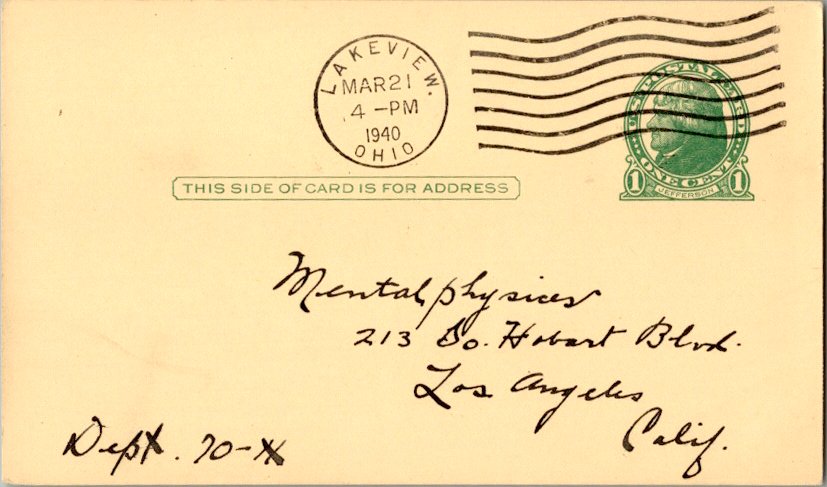 LAKEVIEW.
MAR 21
4 -PM
1940
OHIO
U.S. POSTAL CARD
ONE CENT
1 JEFFERSON 1
THIS SIDE OF CARD IS FOR ADDRESS
Mentalphysics
213 So. Hobart Blvd.
Los Angeles
Calif.
Dept. 70-X